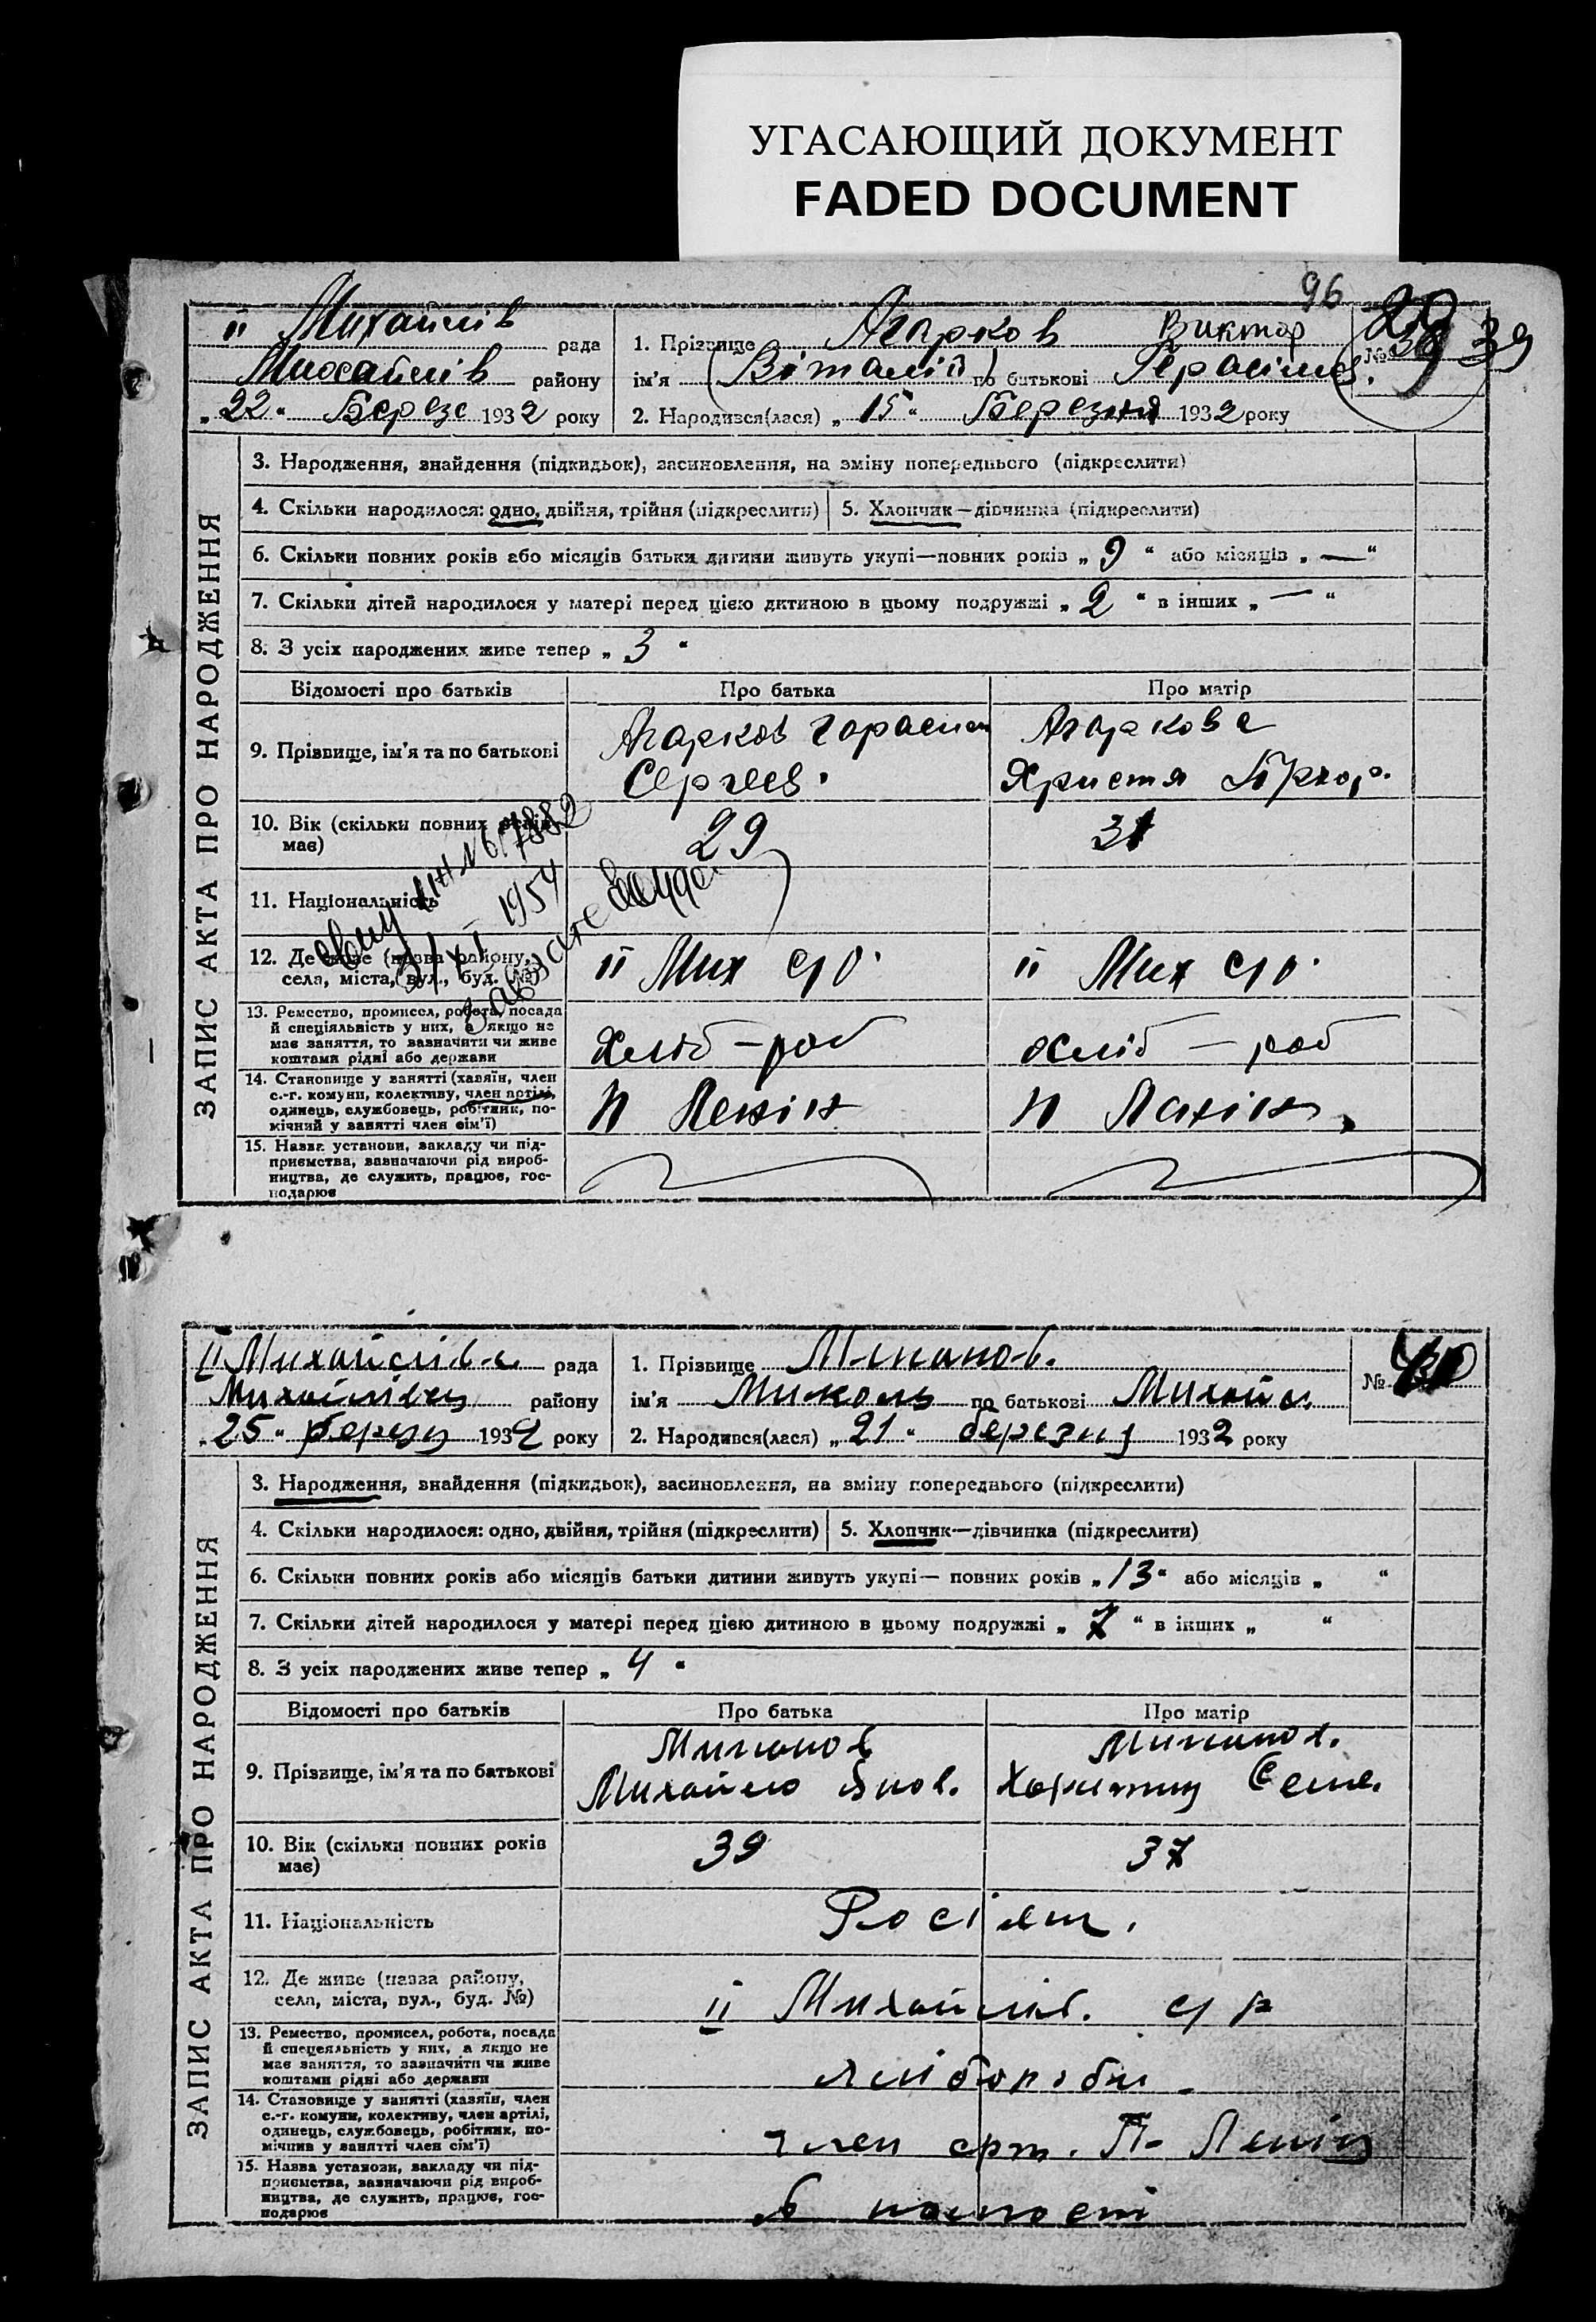 УГАСАЮЩИЙ ДОКУМЕНТ
FADED DOCUMENT
96
ЗАПИС АКТА ПРО НАРОДЖЕННЯ
II Михайлів рада
Михайлів району
„22“ Березе 1932 року
1. Прізвище Агарков Виктор
ім'я (Віталій) по батькові Герасімов.
2. Народився(лася) „15“ Березня 1932 року
№ 39
3. Народження, знайдення (підкидьок), засиновлення, на зміну попереднього (підкреслити)
4. Скільки народилося: одно, двійня, трійня (підкреслити)
5. Хлопчик—дівчинка (підкреслити)
6. Скільки повних років або місяців батьки дитини живуть укупі—повних років „9“ або місяців „—“
7. Скільки дітей народилося у матері перед цією дитиною в цьому подружжі „2“ в інших „—“
8. З усіх народжених живе тепер „3“
Відомості про батьків
Про батька
Про матір
9. Прізвище, ім'я та по батькові
Агарков Герасим
Сергеев.
Агаркова
Христя
10. Вік (скільки повних років
має)
29
31
11. Національність
№ 17882
1954
12. Де живе (назва району,
села, міста, вул., буд. №)
II Мих с/р.
II Мих с/р.
13. Ремество, промисел, робота, посада
й спеціяльність у них, а якщо не
має заняття, то зазначити чи живе
коштами рідні або держави
Хліб—роб
хліб — роб
14. Становище у занятті (хазяїн, член
с.-г. комуни, колективу, член артілі,
одинець, службовець, робітник, по-
мічний у занятті член сім'ї)
П Леніна
П Леніна
15. Назва установи, закладу чи під-
приємства, зазначаючи рід вироб-
ництва, де служить, працює, гос-
подарює
ЗАПИС АКТА ПРО НАРОДЖЕННЯ
II Михайлівс. рада
Михайлівец району
„25“ березн 1932 року
1. Прізвище
ім'я Микола по батькові Михайл.
2. Народився(лася) „21“ березня 1932 року
№ 40
3. Народження, знайдення (підкидьок), засиновлення, на зміну попереднього (підкреслити)
4. Скільки народилося: одно, двійня, трійня (підкреслити)
5. Хлопчик—дівчинка (підкреслити)
6. Скільки повних років або місяців батьки дитини живуть укупі— повних років „13“ або місяців „ “
7. Скільки дітей народилося у матері перед цією дитиною в цьому подружжі „7“ в інших „ “
8. З усіх народжених живе тепер „4“
Відомості про батьків
Про батька
Про матір
9. Прізвище, ім'я та по батькові
Михайло Яков.
Харитина Семе.
10. Вік (скільки повних років
має)
39
37
11. Національність
Росіян.
12. Де живе (назва району,
села, міста, вул., буд. №)
II Михайлів. с/р
13. Ремество, промисел, робота, посада
й спецеяльність у них, а якщо не
має заняття, то зазначити чи живе
коштами рідні або держави
хлібороби
14. Становище у занятті (хазяїн, член
с.-г. комуни, колективу, член артілі,
одинець, службовець, робітник, по-
мічник у занятті член сім'ї)
член арт. П- Леніна
15. Назва установи, закладу чи під-
приємства, зазначаючи рід вироб-
ництва, де служить, працює, гос-
подарює